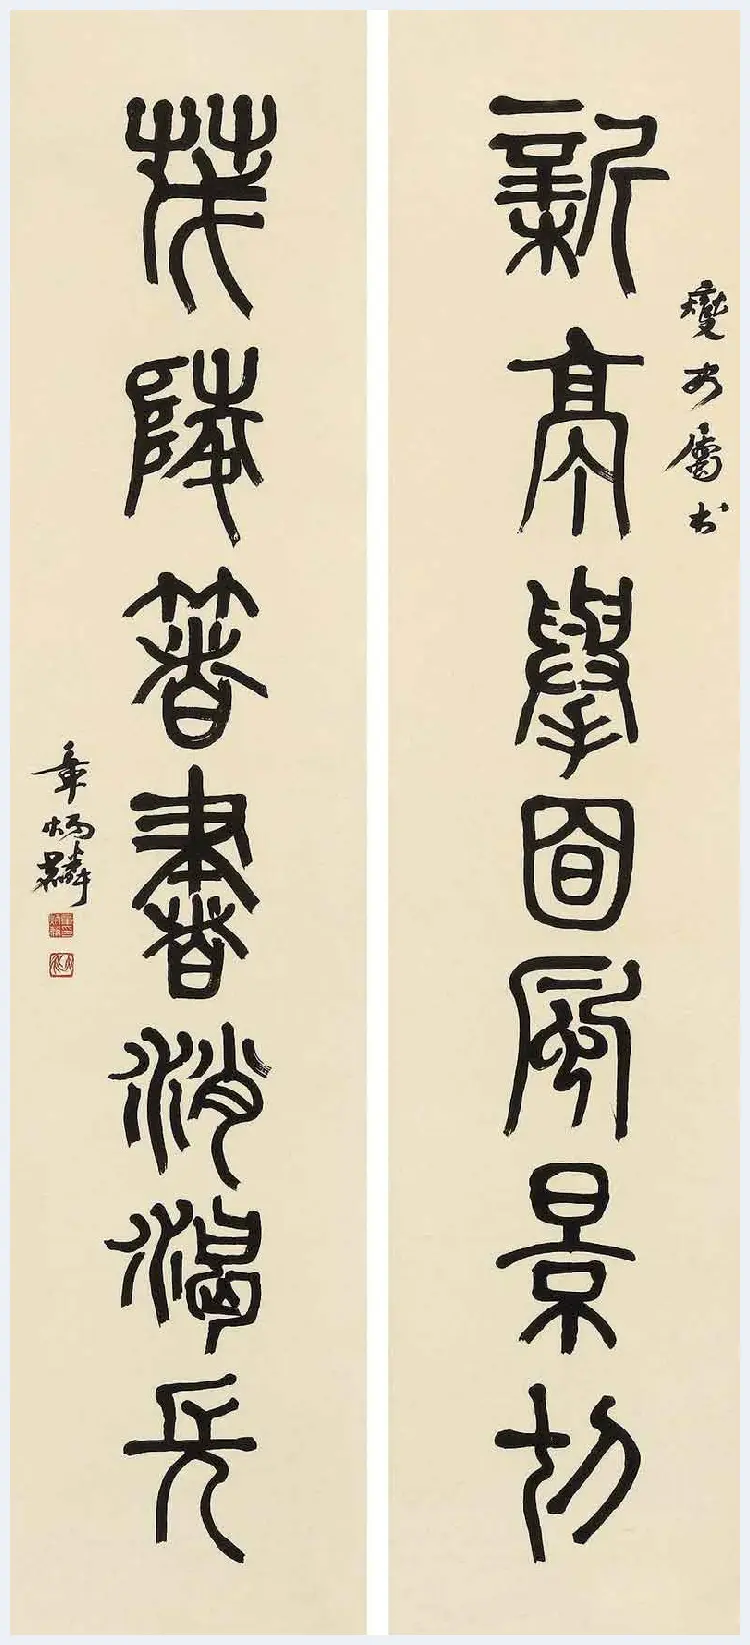 屬書
新亭舉目風景切
茂陵著書消渴長
章炳麟